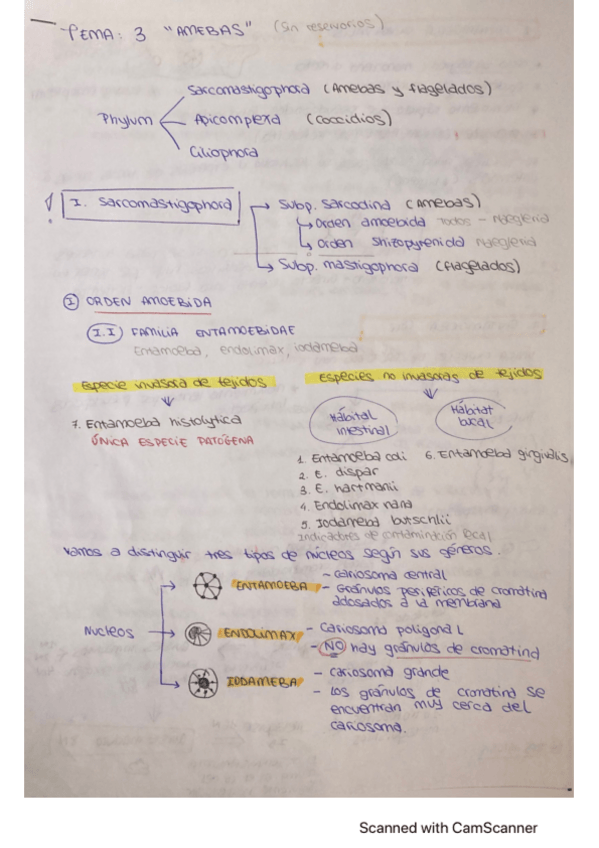 TEMA: 3 "AMEBAS" (Sin reservorios)
Sarcomastigophora (Amebas y flagelados)
Phylum Apicomplexa (coccidios)
Ciliophora
! I. Sarcomastigophora
Subp. Sarcodina (Amebas)
Orden amoebida Todos - Naegleria
Orden Shizopyrenida Naegleria
Subp. mastigophora (flagelados)
I ORDEN AMOEBIDA
I.I FAMILIA ENTAMOEBIDAE
Entamoeba, endolimax, iodameba
Especie invasora de tejidos
7. Entamoeba histolytica
ÚNICA ESPECIE PATÓGENA
Especies no invasoras de tejidos
Hábital intestinal
Hábitat bucal
1. Entamoeba coli 6. Entamoeba gingivalis
2. E. dispar
3. E. hartmanii
4. Endolimax nana
5. Iodameba butschlii
Indicadores de contaminación fecal
Vamos a distinguir tres tipos de núcleos según sus géneros.
Nucleos
ENTAMOEBA
- Cariosoma central
- Gránulos periféricos de cromatina
adosados a la membrana
ENDOLIMAX
- Cariosoma poligonal
- NO hay gránulos de cromatina
IODAMEBA
- cariosoma grande
- Los gránulos de cromatina se
encuentran muy cerca del
cariosoma.
Scanned with CamScanner